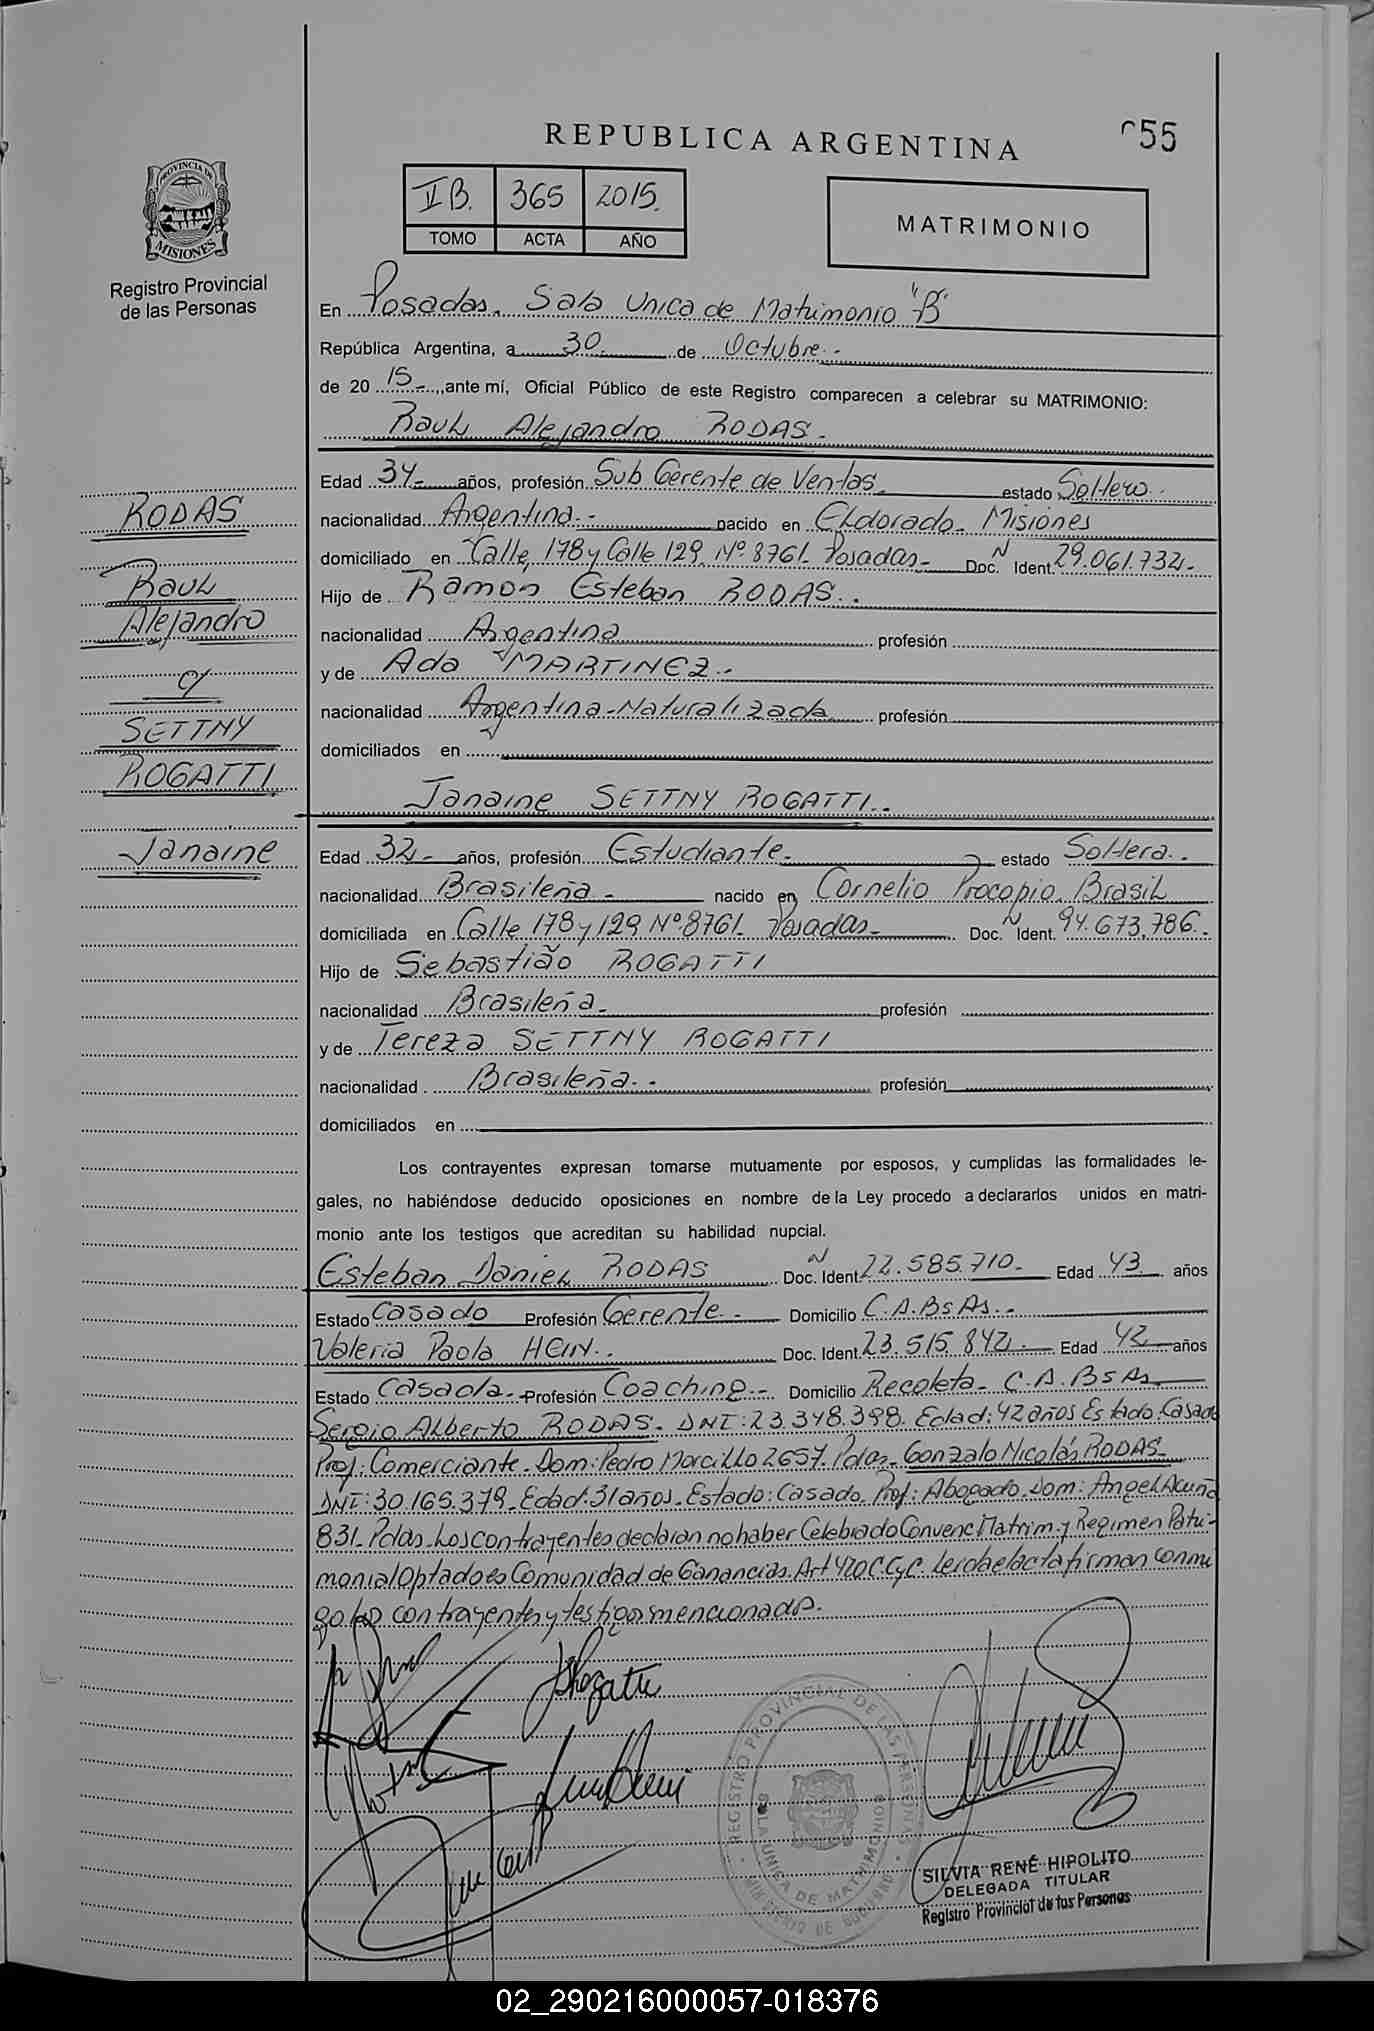 REPUBLICA ARGENTINA
055
PROVINCIA DE
MISIONES
Registro Provincial
de las Personas
II B. 365 2015.
TOMO ACTA AÑO
MATRIMONIO
En Posadas. Sala Unica de Matrimonio "B"
República Argentina, a 30 de Octubre.-
de 20 15- ,ante mí, Oficial Público de este Registro comparecen a celebrar su MATRIMONIO:
Raul Alejandro RODAS.
Edad 34- años, profesión Sub Gerente de Ventas estado Soltero.
nacionalidad Argentina.- nacido en Eldorado- Misiones
domiciliado en Calle 178 y Calle 129 Nº 8761- Posadas- Doc. N Ident. 29.061.732-
Hijo de Ramon Esteban RODAS..
nacionalidad Argentina profesión
y de Ada MARTINEZ.-
nacionalidad Argentina-Naturalizada profesión
domiciliados en
Janaine SETTNY ROGATTI..
Edad 32- años, profesión Estudiante- estado Soltera..
nacionalidad Brasileña- nacido en Cornelio Procopio. Brasil
domiciliada en Calle 178 y 129 Nº 8761- Posadas- Doc. N Ident. 94.673.786.-
Hijo de Sebastião ROGATTI
nacionalidad Brasileña- profesión
y de Tereza SETTNY ROGATTI
nacionalidad Brasileña.. profesión
domiciliados en
RODAS
Raul
Alejandro
c/
SETTNY
ROGATTI
Janaine
Los contrayentes expresan tomarse mutuamente por esposos, y cumplidas las formalidades le-
gales, no habiéndose deducido oposiciones en nombre de la Ley procedo a declararlos unidos en matri-
monio ante los testigos que acreditan su habilidad nupcial.
Esteban Daniel RODAS Doc. N Ident. 22.585.710- Edad 43 años
Estado Casado Profesión Gerente.- Domicilio C.A.BsAs.-
Valeria Paola HEIN.. Doc. Ident. 23.515.842- Edad 42 años
Estado Casada.- Profesión Coaching.- Domicilio Recoleta- C.A.BsAs-
Sergio Alberto RODAS- DNI: 23.348.398. Edad: 42 años Estado: Casado
Prof: Comerciante- Dom: Pedro Morcillo 2657. Pdas- Gonzalo Nicolás RODAS-
DNI: 30.165.379- Edad: 31 años. Estado: Casado. Prof: Abogado. Dom: Angel Acuña
831- Pdas. Los contrayentes declaran no haber Celebrado Convenc Matrim. y Regimen Patri-
monial Optado es Comunidad de Ganancias. Art 420 C.C y C. Leida el acta firman conmi
go los contrayentes y testigos mencionados.
REGISTRO PROVINCIAL DE LAS PERSONAS
SALA UNICA DE MATRIMONIO
MINISTERIO DE GOBIERNO
SILVIA RENÉ HIPOLITO
DELEGADA TITULAR
Registro Provincial de las Personas
02_290216000057-018376